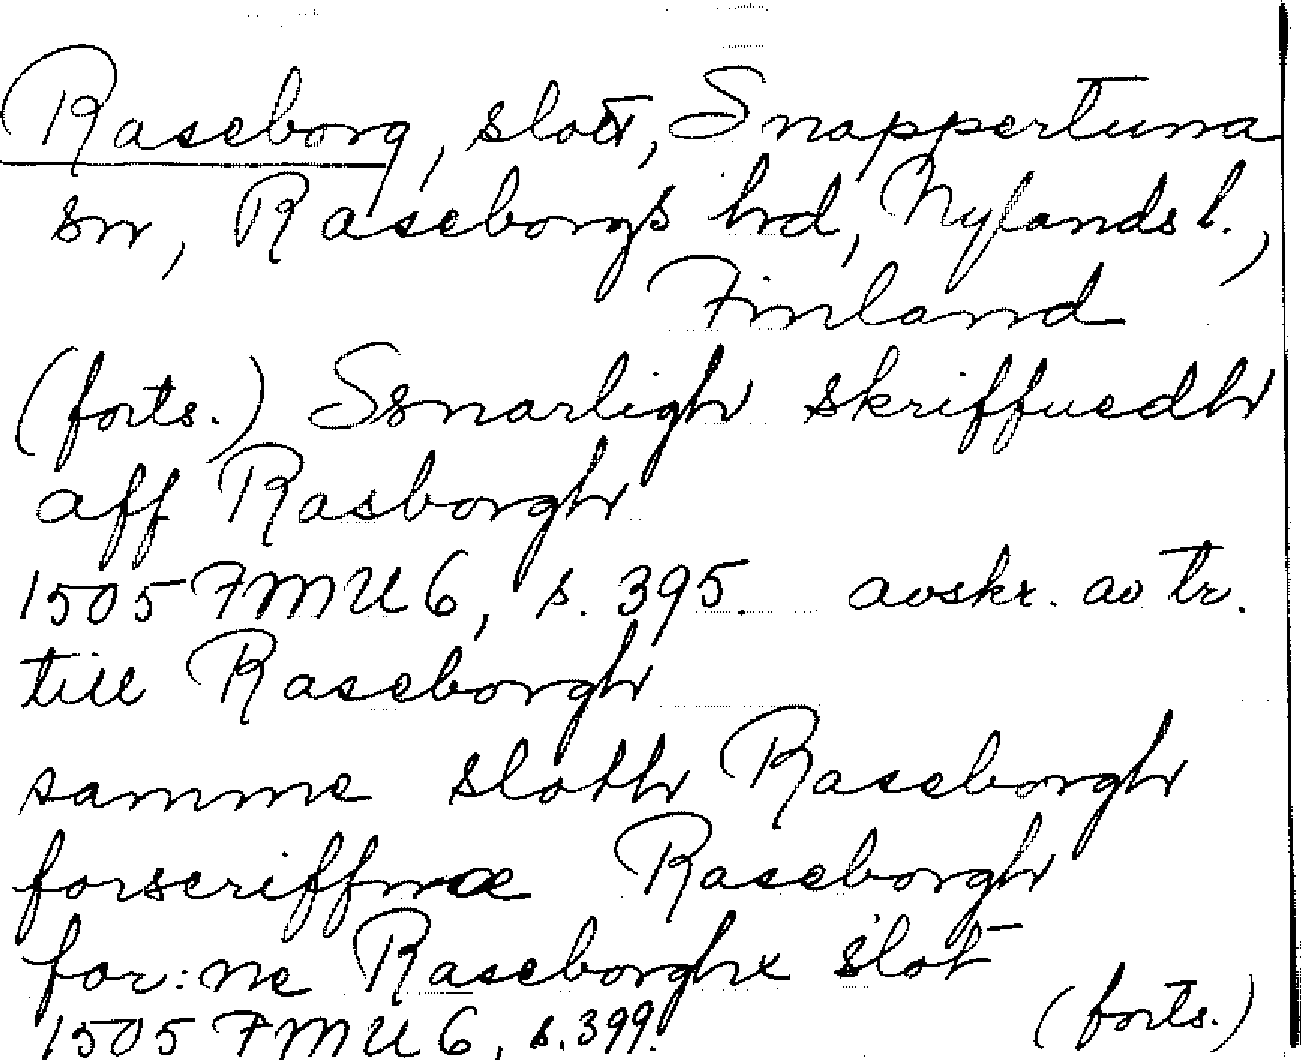 Raseborg, slott, Snappertuna
sn, Raseborgs hrd, Nylands l.,
Finland
(forts.) Ssnarligh skriffuedh
aff Rasborgh
1505 FMU 6, s. 395. avskr. av tr.
till Raseborgh
samme sloth Raseborgh
forscriffnæ Raseborgh
for:ne Raseborghx slot
1505 FMU 6, s. 399.
(forts.)